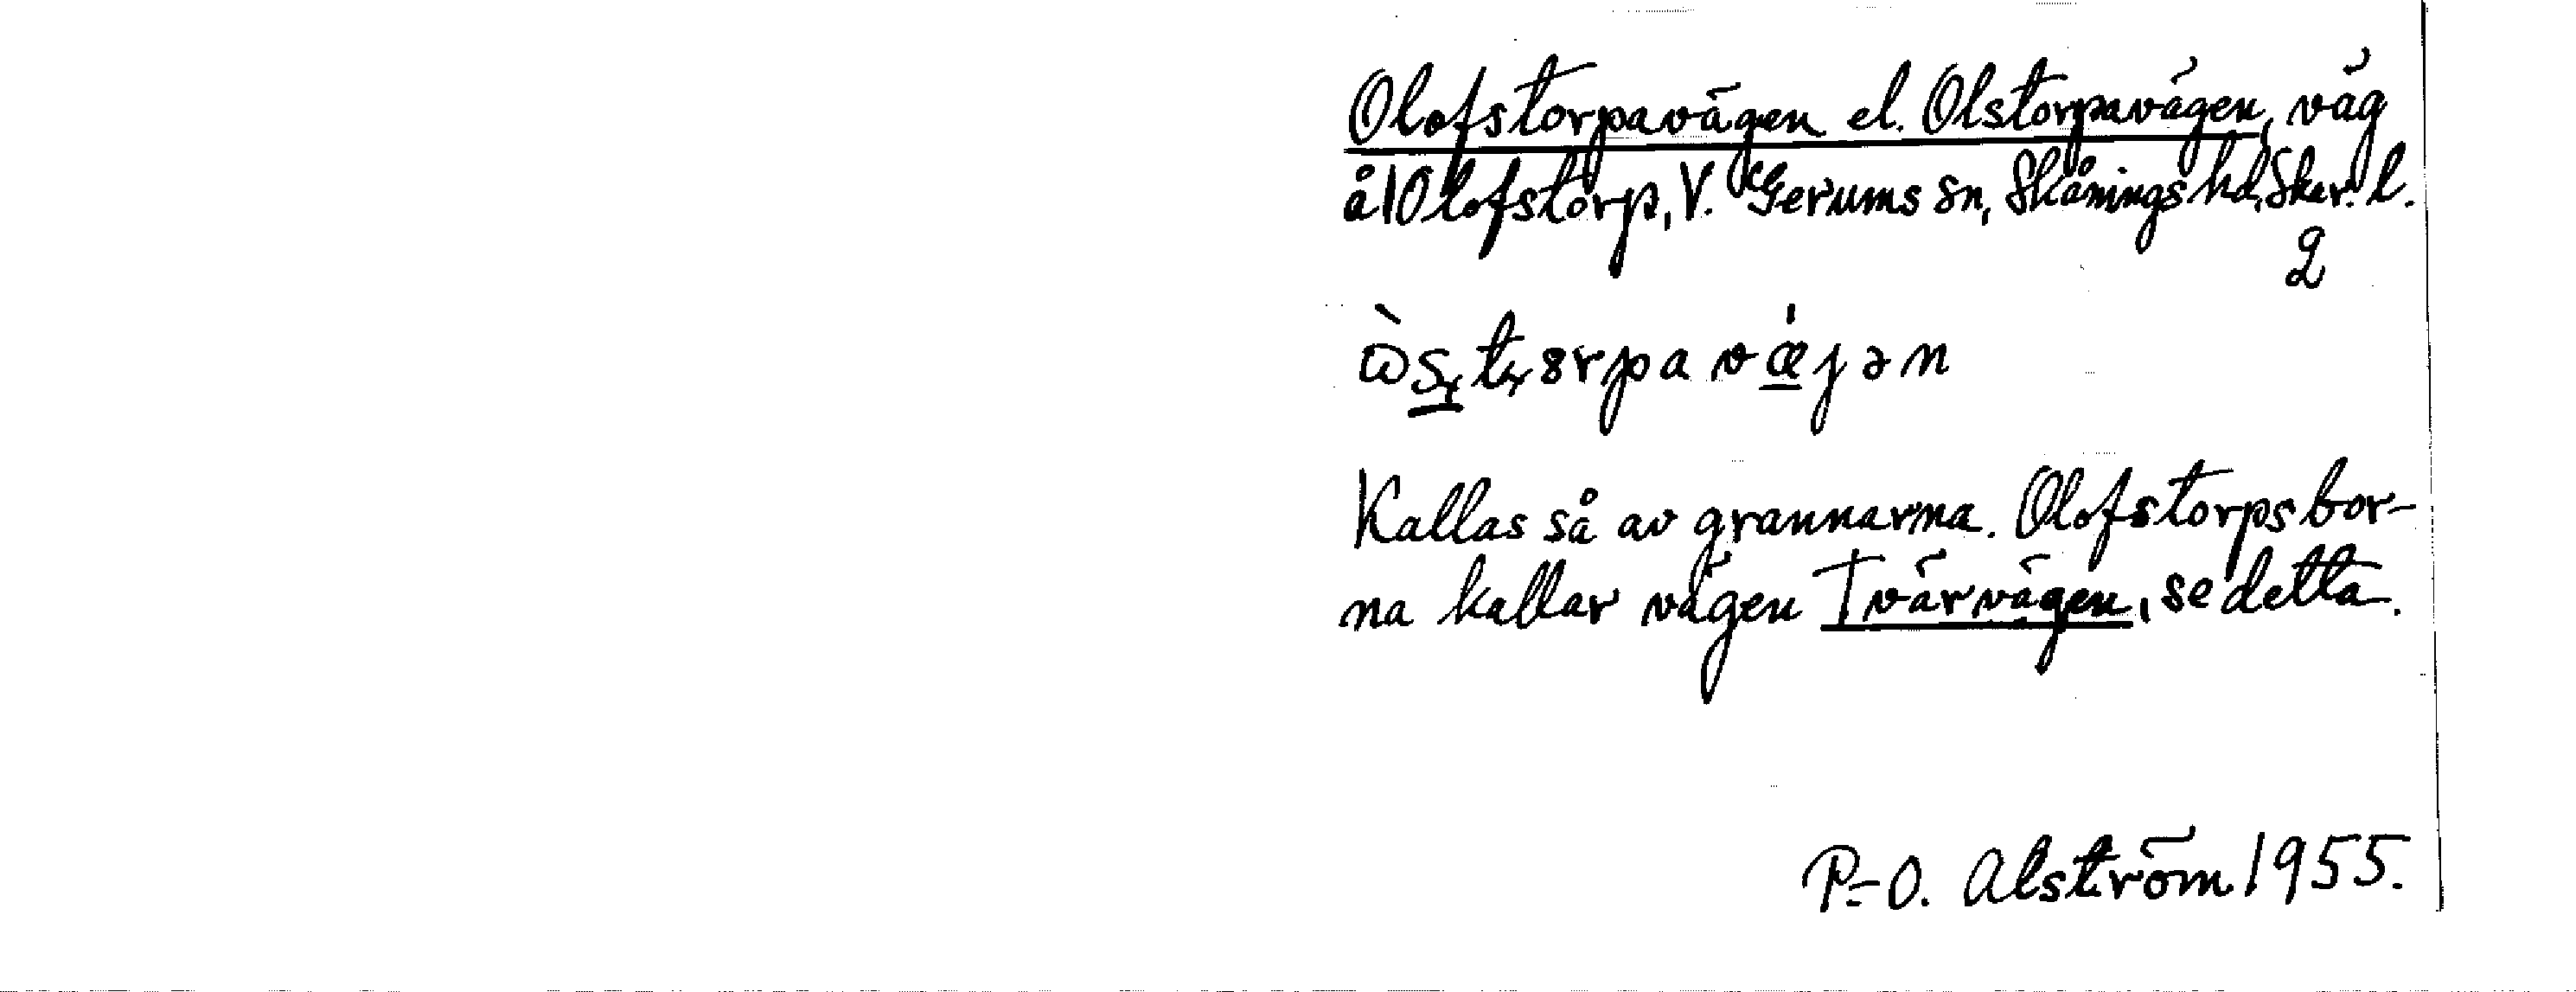 Olofstorpavägen el. Olstorpavägen, väg
å 1 Olofstorp, V. Gerums sn, Skånings hd, Skar. l.
2
Kallas så av grannarna. Olofstorpsbor-
na kallar vägen Tvärvägen, se detta.
P-O. Alström 1955.